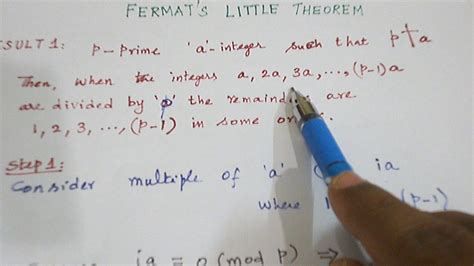 FERMAT'S LITTLE THEOREM
SULT 1: p-prime 'a'-integer such that p∤a
Then, when the integers a, 2a, 3a, ..., (p-1)a
are divided by 'p' the remaind are
1, 2, 3, ..., (p-1) in some
Step 1:
Consider multiple of 'a' ia
where (p-1)
ia ≡ 0 (mod p) ⇒